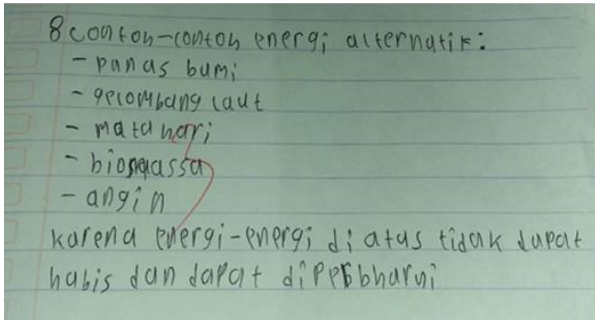 8 contoh-contoh energi alternatif:
- panas bumi
- gelombang laut
- matahari
- biomassa
- angin
karena energi-energi di atas tidak dapat
habis dan dapat diperbharui